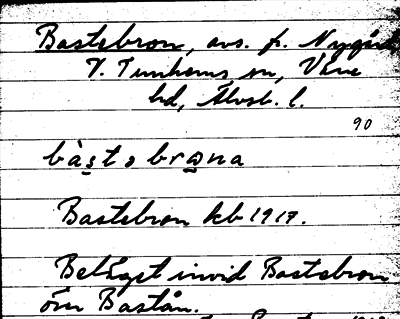 Bastebron, avs. fr. Nygård
V. Tunhems sn, Väne
hd, Älvsb. l.
90
bàstəbrωna
Bastebron kb 1917.
Beläget invid Bastebron
över Bastån.